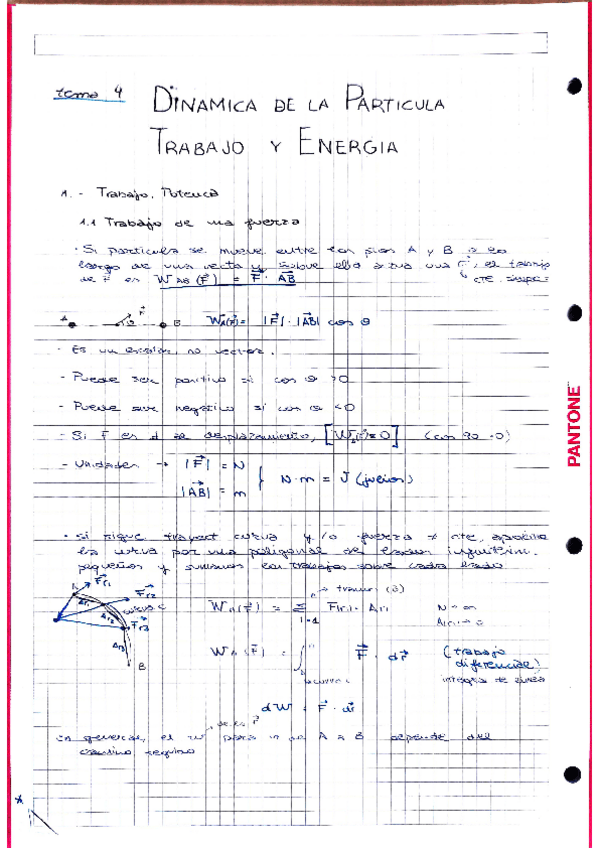 tema 4 DINAMICA DE LA PARTICULA
TRABAJO Y ENERGIA
1. - Trabajo, Potencia
1.1 Trabajo de una fuerza
· Si particula se mueve entre los ptos A y B a lo
largo de una recta y sobre ella actua una F, el trabajo
de F es W AB (F) = F · AB cte
A F θ B W(F) = |F| · |AB| cos θ
- Es un escalar, no vector.
- Puede ser positivo si cos θ > 0
- Puede ser negativo si cos θ < 0
- Si F es ⊥ desplazamiento, [W(F) = 0] (cos 90 = 0)
- Unidades → |F| = N
|AB| = m } N · m = J (julios)
· si sigue trayect curva y/o fuerza ≠ cte,
la curva por una poligonal de lados infinitesim.
pequeños y sumamos los trabajos sobre cada lado
A Fr1 Fr2 Fr3 Δr1 Δr2 Δr3 curva C B
→ tramos
W(F) = Σ F(ri) · Δri N → ∞
i=1 Δri → 0
W(F) = ∫ F · dr (trabajo
diferencial)
curva c integral de linea
dW = F · dr
de la F
en general, el W para ir de A a B depende del
camino seguido
PANTONE